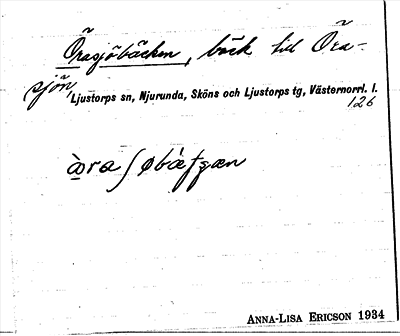 Örasjöbäcken, bäck till Öra-
sjön,
Ljustorps sn, Njurunda, Sköns och Ljustorps tg, Västernorrl. l.
126
ANNA-LISA ERICSON 1934